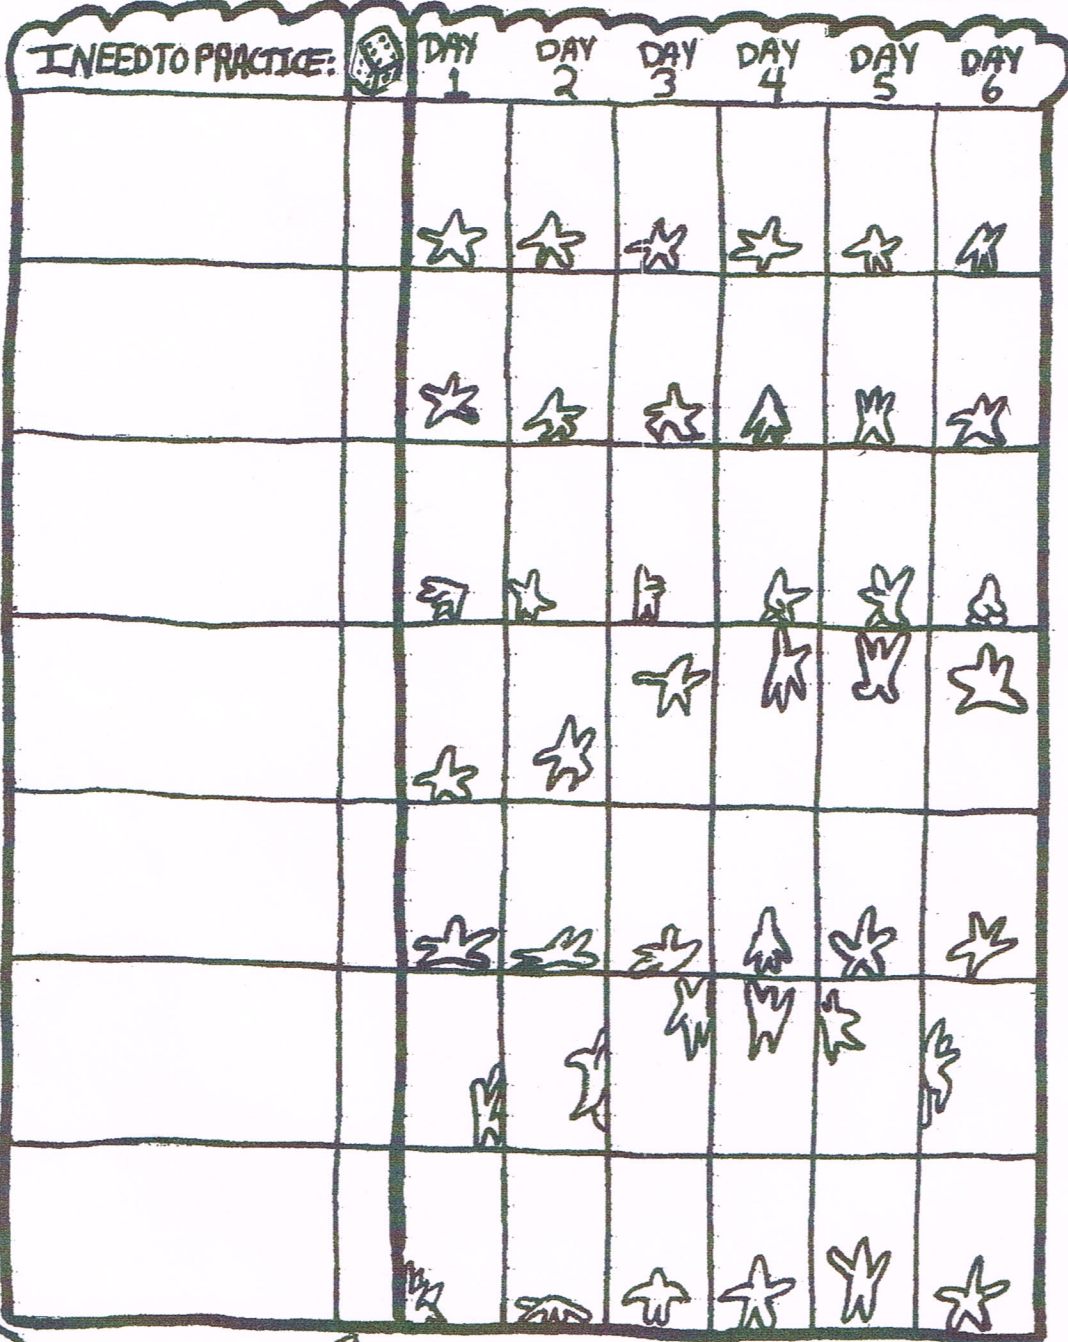 I NEED TO PRACTICE:
DAY 1
DAY 2
DAY 3
DAY 4
DAY 5
DAY 6